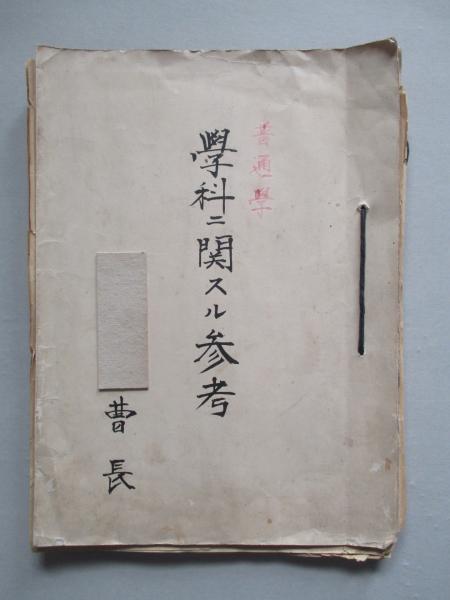 普通學
學科ニ関スル参考
曹長